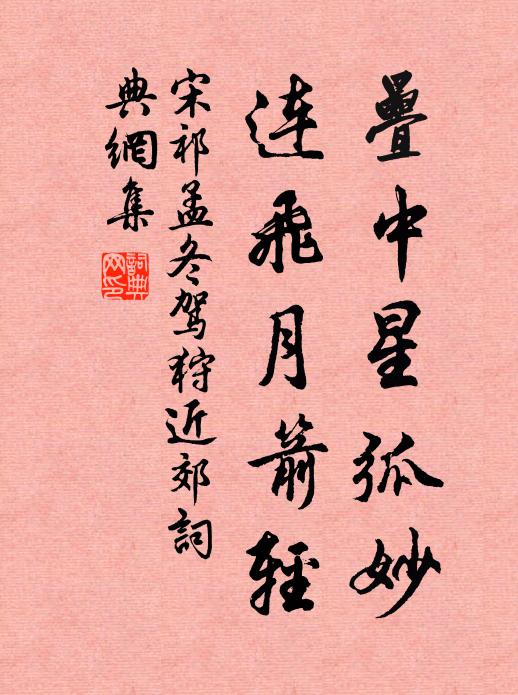 疊中星弧妙
連飛月箭輕
宋祁孟冬駕狩近郊詞
典網集
詞典网印